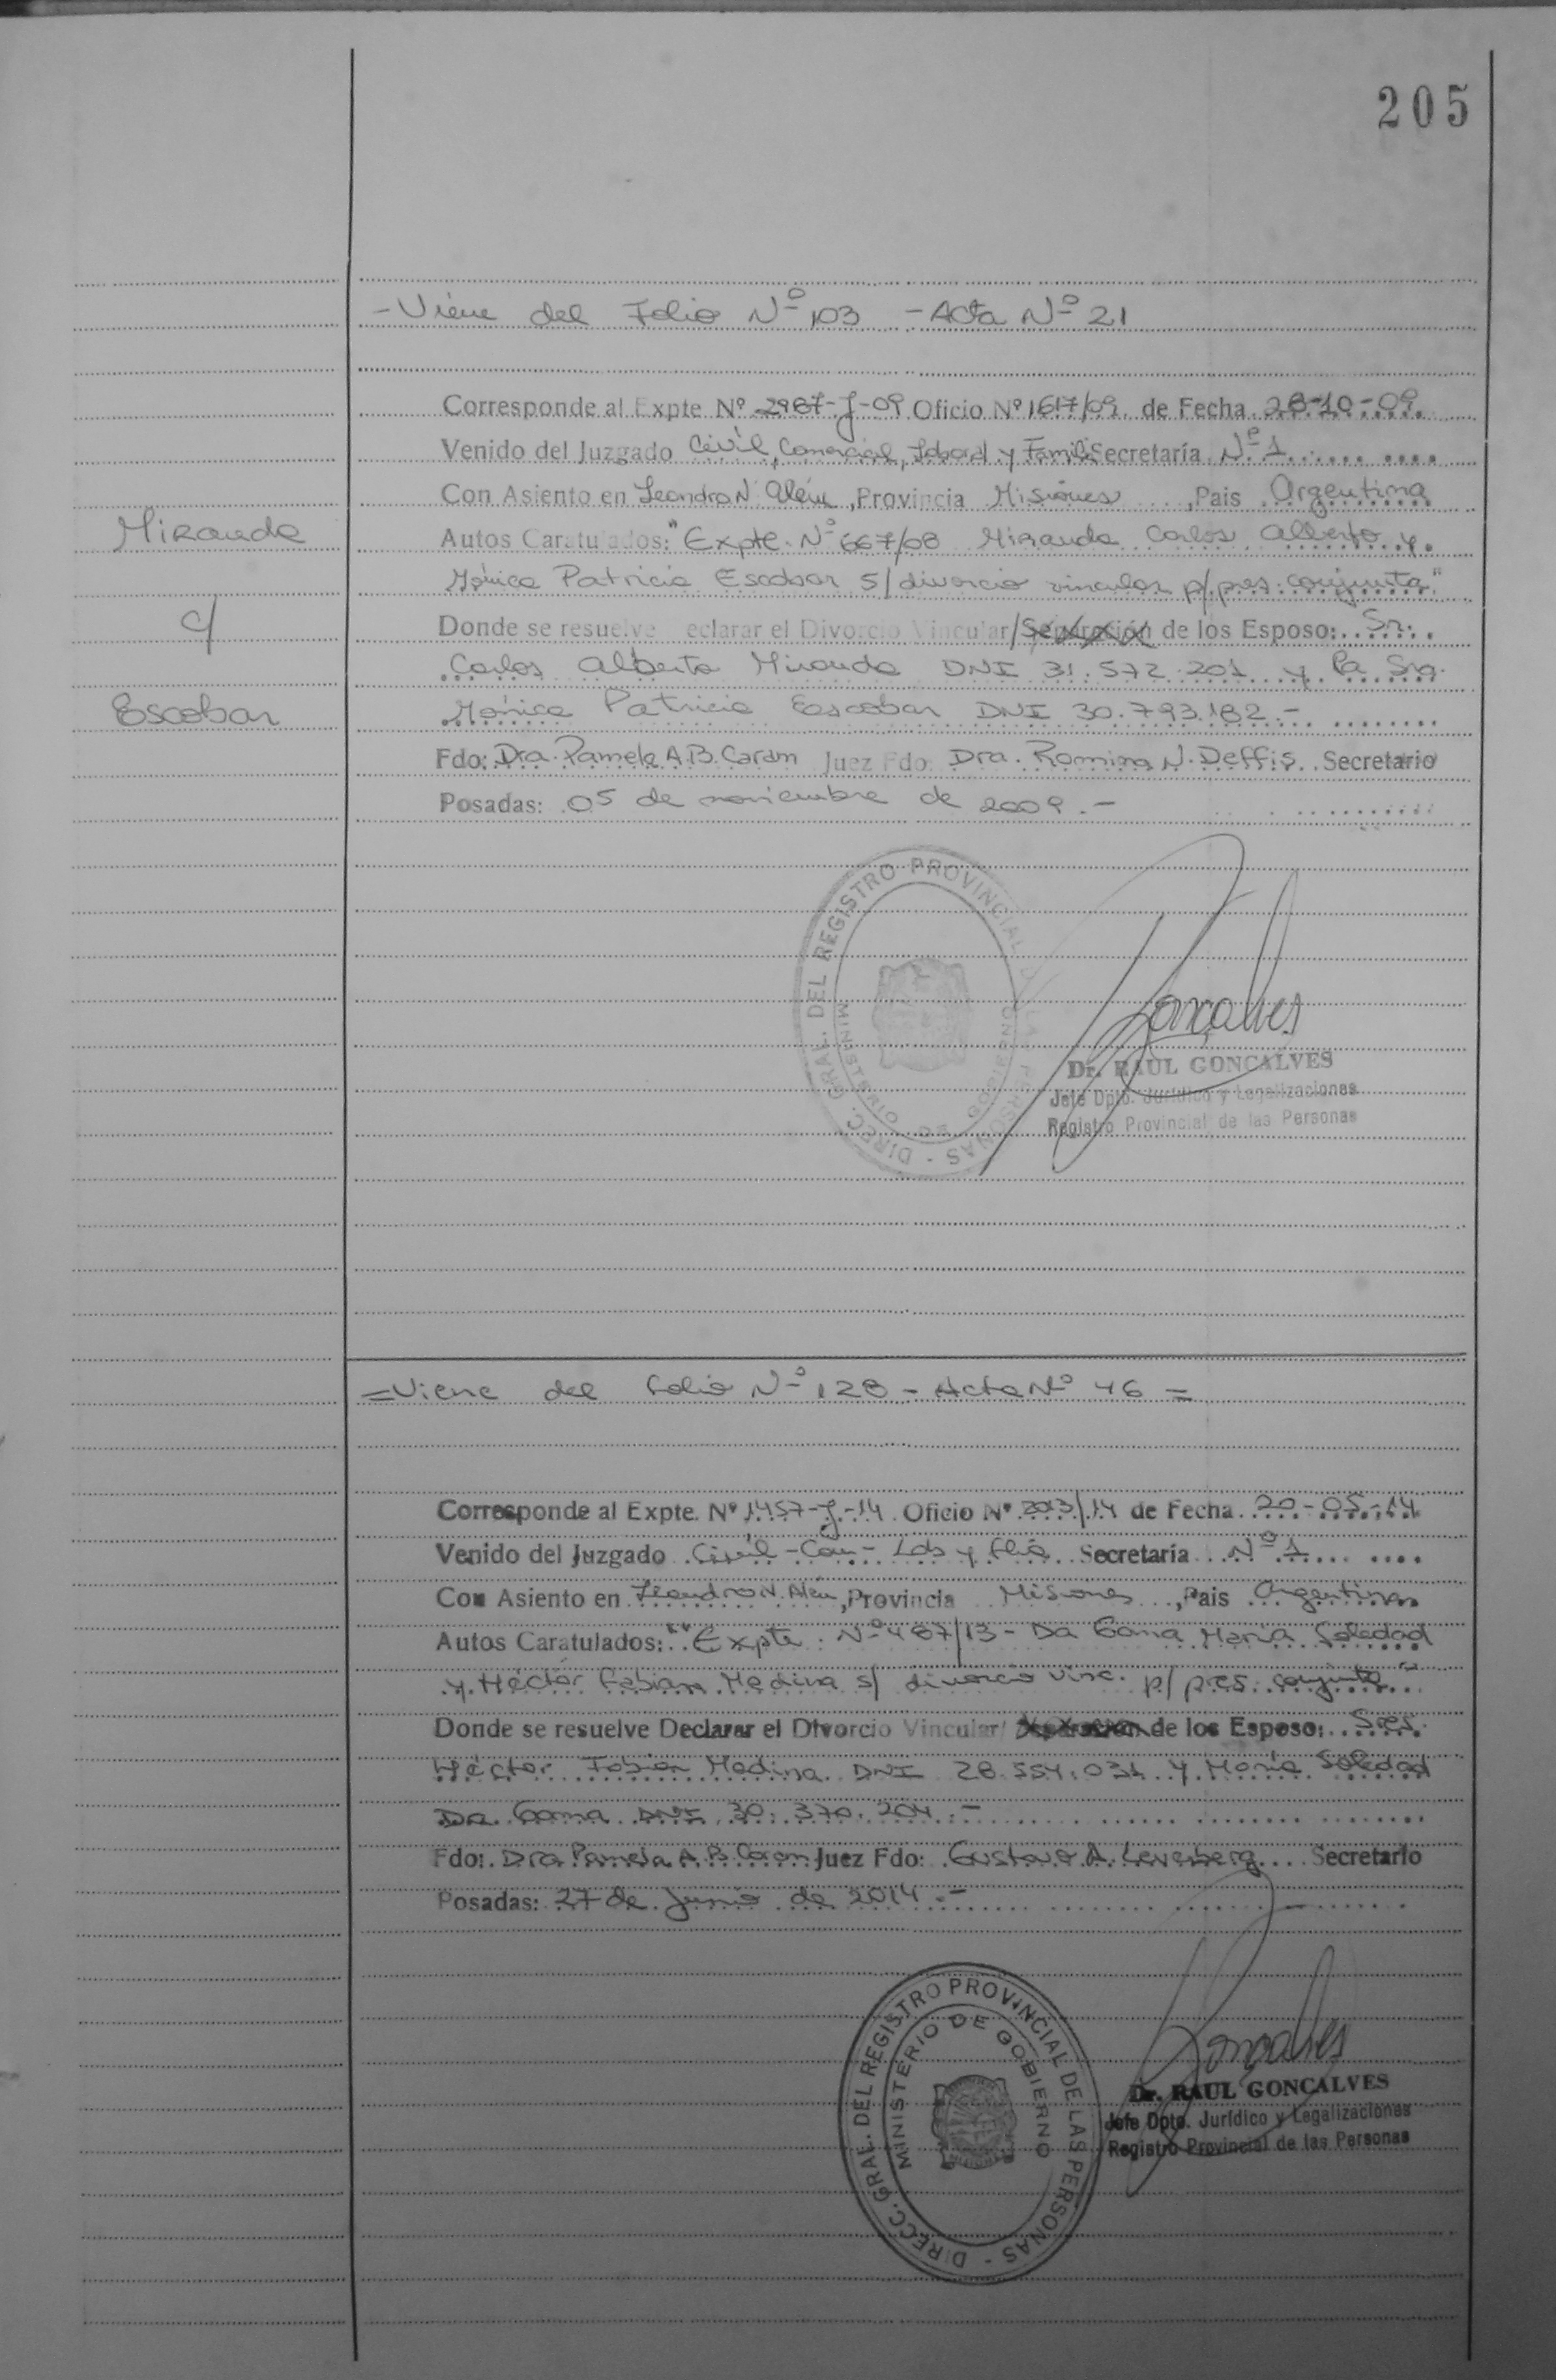 205
- Viene del Folio Nº 103 - Acta Nº 21
Corresponde al Expte Nº 2987-J-09 Oficio Nº 1617/09 de Fecha 28-10-09
Venido del Juzgado Civil, Comercial, Laboral y Famili Secretaría Nº 1
Con Asiento en Leandro N. Alem, Provincia Misiones, Pais Argentina
Miranda
Autos Caratulados: "Expte. Nº 667/08 Miranda Carlos Alberto y
Mónica Patricia Escobar s/ divorcio vincular p/ pres. conjunta"
c/
Donde se resuelve eclarar el Divorcio Vincular/Separación de los Esposo: Sr.
Carlos Alberto Miranda DNI 31.572.201 y la Sra.
Escobar
Mónica Patricia Escobar DNI 30.793.182.-
Fdo: Dra. Pamela A.B. Caram Juez Fdo: Dra. Romina N. Deffis. Secretario
Posadas: 05 de noviembre de 2009.-
DIRECC. GRAL. DEL REGISTRO PROVINCIAL DE LAS PERSONAS -
MINISTERIO DE GOBIERNO
Goncalves
Dr. RAUL GONCALVES
Jefe Dpto. Jurídico y Legalizaciones
Registro Provincial de las Personas
= Viene del folio Nº 128 - Acta Nº 46 =
Corresponde al Expte. Nº 1457-J-14 Oficio Nº 2013/14 de Fecha 20-05-14
Venido del Juzgado Civil-Com- Lab y flia Secretaría Nº 1
Con Asiento en Leandro N. Alem, Provincia Misiones, Pais Argentina
Autos Caratulados: "Expte. Nº 487/13 - Da Gama María Soledad
y Héctor Fabian Medina s/ divorcio vinc. p/ pres. conjunta"
Donde se resuelve Declarar el Divorcio Vincular/ Separación de los Esposo: Sres.
Héctor Fabian Medina DNI 28.554.031 y María Soledad
Da Gama DNI 30.370.204.-
Fdo: Dra Pamela A.B. Caram Juez Fdo: Gustavo A. Leverberg Secretario
Posadas: 27 de Junio de 2014.-
DIRECC. GRAL. DEL REGISTRO PROVINCIAL DE LAS PERSONAS -
MINISTERIO DE GOBIERNO
Goncalves
Dr. RAUL GONCALVES
Jefe Dpto. Jurídico y Legalizaciones
Registro Provincial de las Personas